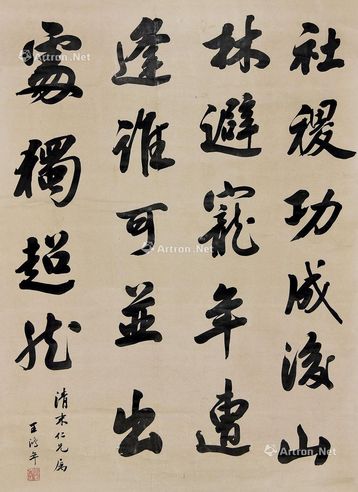 社稷功成後山
林避寵年遭
逢誰可並出
處獨超然
清来仁兄屬
王鴻年
Artron.Net
Artron.Net
Artron.Net
Artron.Net
Artron.Net